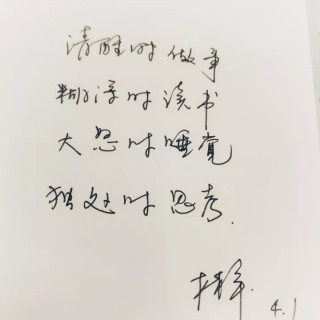 清醒时做事
糊涂时读书
大怒时睡觉
独处时思考.
4.1